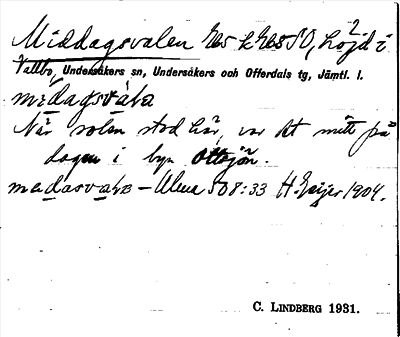 Middagsvalen Gbs & Gbs SO, höjd i
Vallbo, Undersåkers sn, Undersåkers och Offerdals tg, Jämtl. l.
När solen stod här, var det mitt på
dagen i byn Ottsjön.
Ulma 508:33 H. Geijer 1904.
C. LINDBERG 1931.